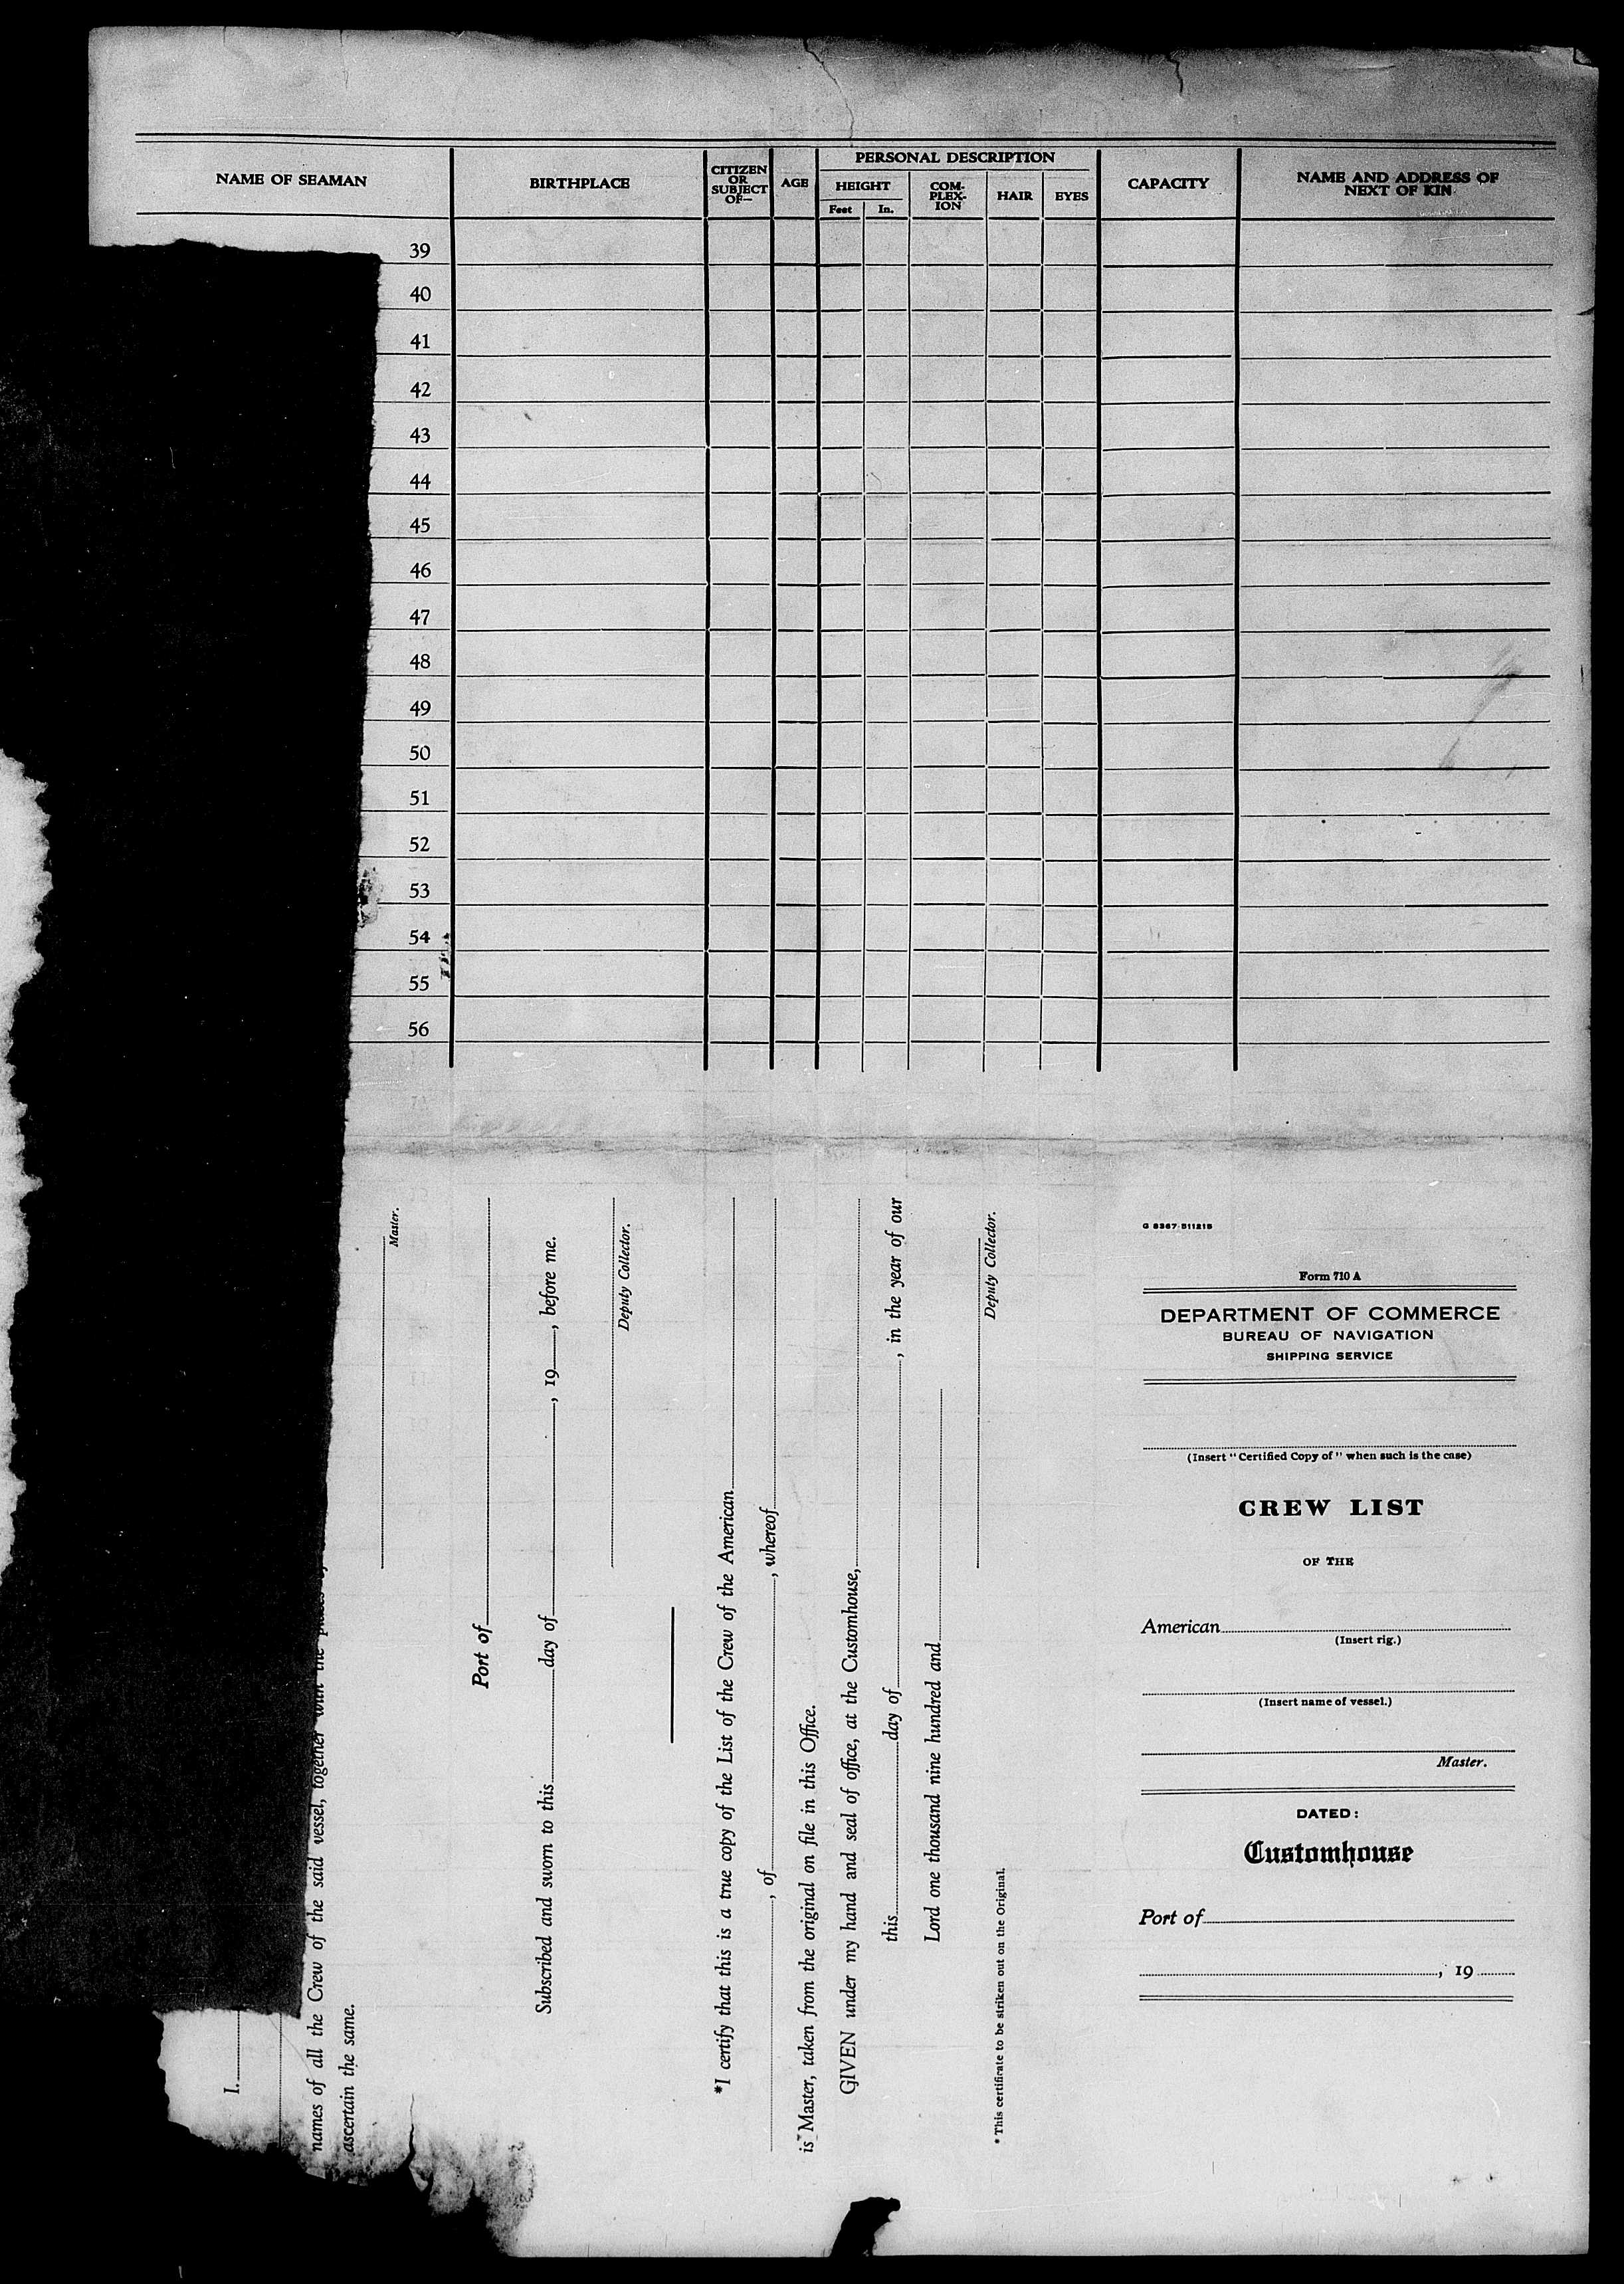 NAME OF SEAMAN
BIRTHPLACE
CITIZEN
OR
SUBJECT
OF—
AGE
PERSONAL DESCRIPTION
HEIGHT
Feet
In.
COM-
PLEX-
ION
HAIR
EYES
CAPACITY
NAME AND ADDRESS OF
NEXT OF KIN
39
40
41
42
43
44
45
46
47
48
49
50
51
52
53
54
55
56
I.
names of all the Crew of the said vessel, together with the
ascertain the same.
Master.
Port of
Subscribed and sworn to this day of , 19 , before me.
Deputy Collector.
*I certify that this is a true copy of the List of the Crew of the American
, of , whereof
is Master, taken from the original on file in this Office.
GIVEN under my hand and seal of office, at the Customhouse,
this day of , in the year of our
Lord one thousand nine hundred and
Deputy Collector.
* This certificate to be striken out on the Original.
G 8367 511215
Form 710 A
DEPARTMENT OF COMMERCE
BUREAU OF NAVIGATION
SHIPPING SERVICE
(Insert "Certified Copy of" when such is the case)
CREW LIST
OF THE
American
(Insert rig.)
(Insert name of vessel.)
Master.
DATED:
Customhouse
Port of
, 19